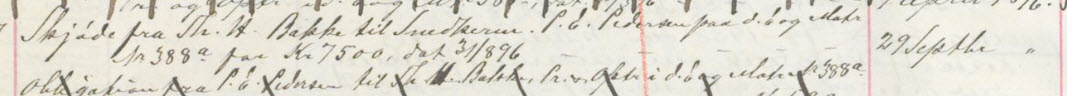 Skjöde fra Th. H. Bakke til Snedkerm. P. E. Pedersen paa d. & og Matr
№ 388a for Kr 7500, dat 31/896
29 Septbr "
Obligation fra P. E. Pedersen til Th. H. Bakke, Pr. o. Opt i d. & og Matr № 388a